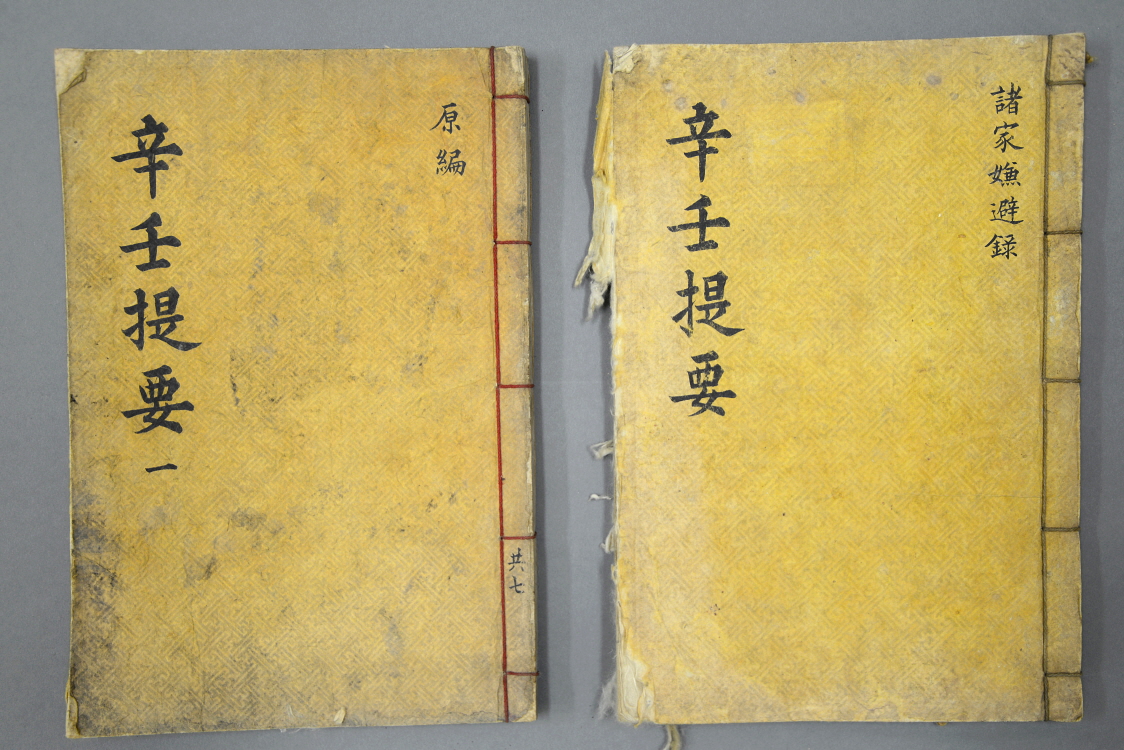 原編
辛壬提要 一
共七
諸家嫌避錄
辛壬提要